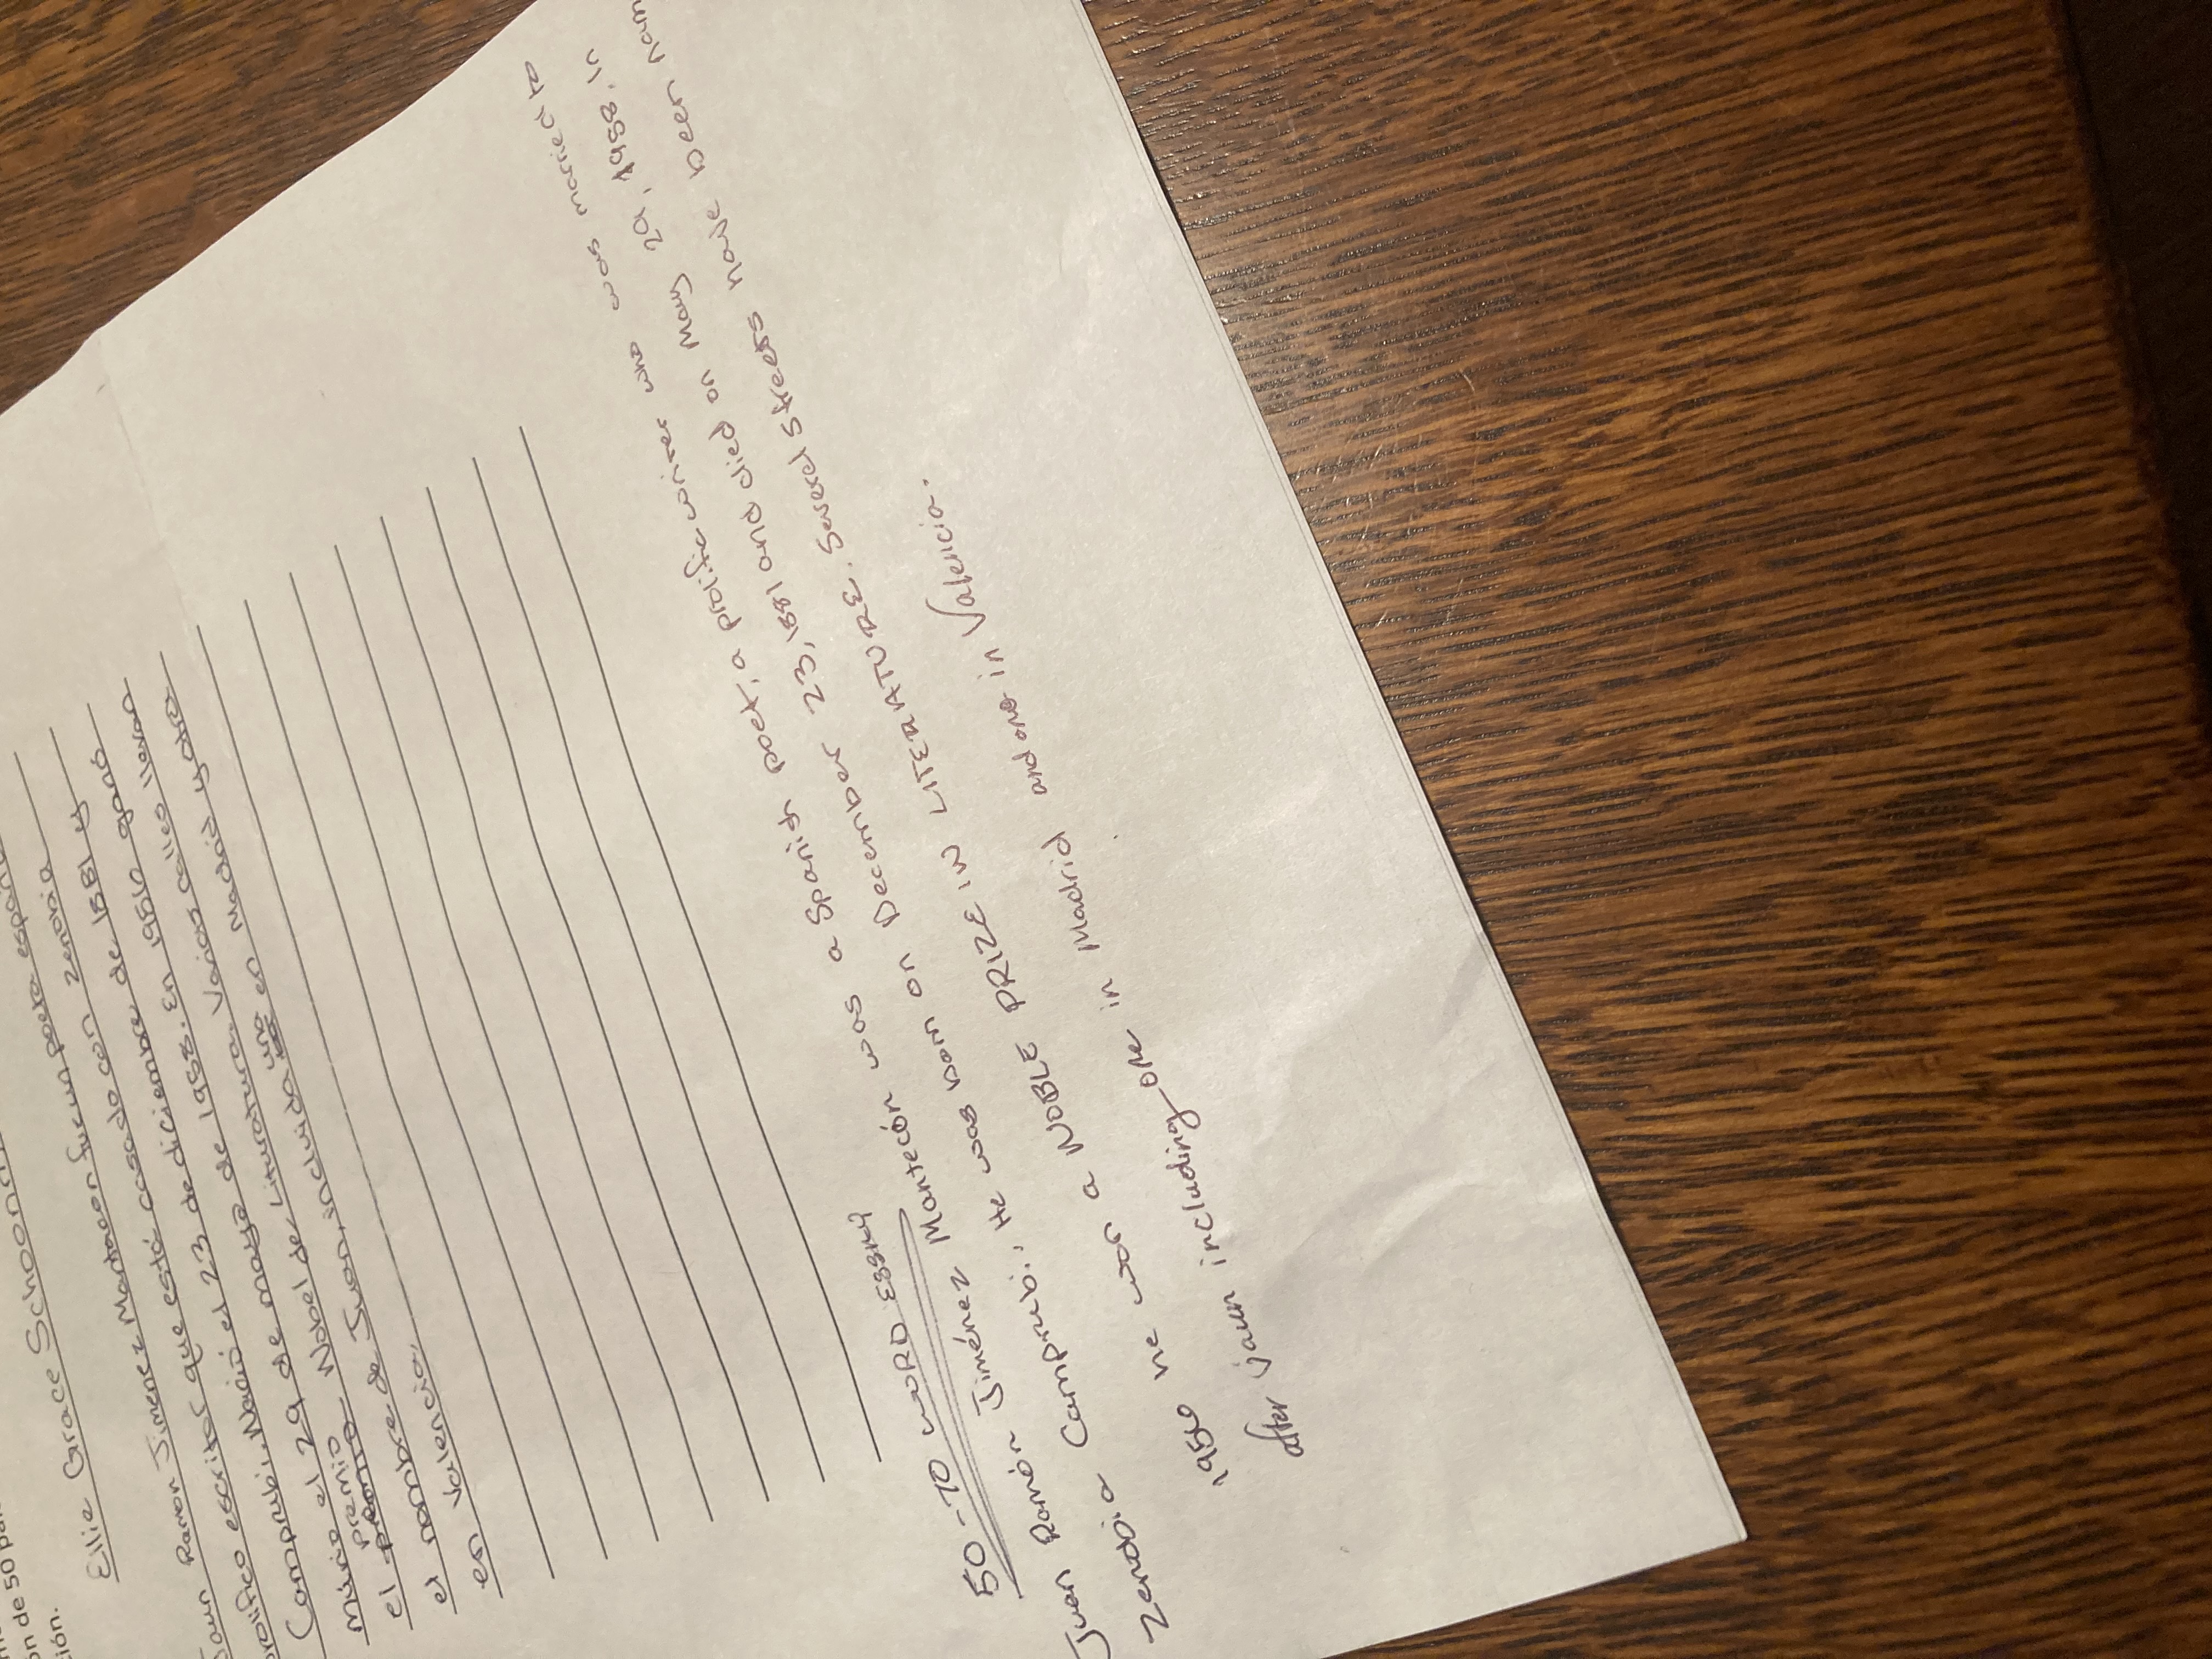 ón de 50
ción.
Ellie Grace
Jaun Ramon Jimenez Mantacon fue un poeta español
prolifico escritor que está casado con Zenobia
Camprubi. Nació el 23 de diciembre de 1881 y
múrio el 29 de mayo de 1958. En 1956 ganó
el premio Nobel de Lituratura. Varias calles llevan
el nombre de Juan, incluida una en Madrid y otra
en Valencia.
50-70 WORD ESSAY
Juan Ramón Jiménez Mantecón was a Spanish poet, a prolific writer who was married to
Zenobia Camprubi. He was born on December 23, 1881 and died on May 29, 1958. In
1956 he won a NOBLE PRIZE IN LITERATURE. Several streets have been nam
after jaun including one in Madrid and one in Valencia.